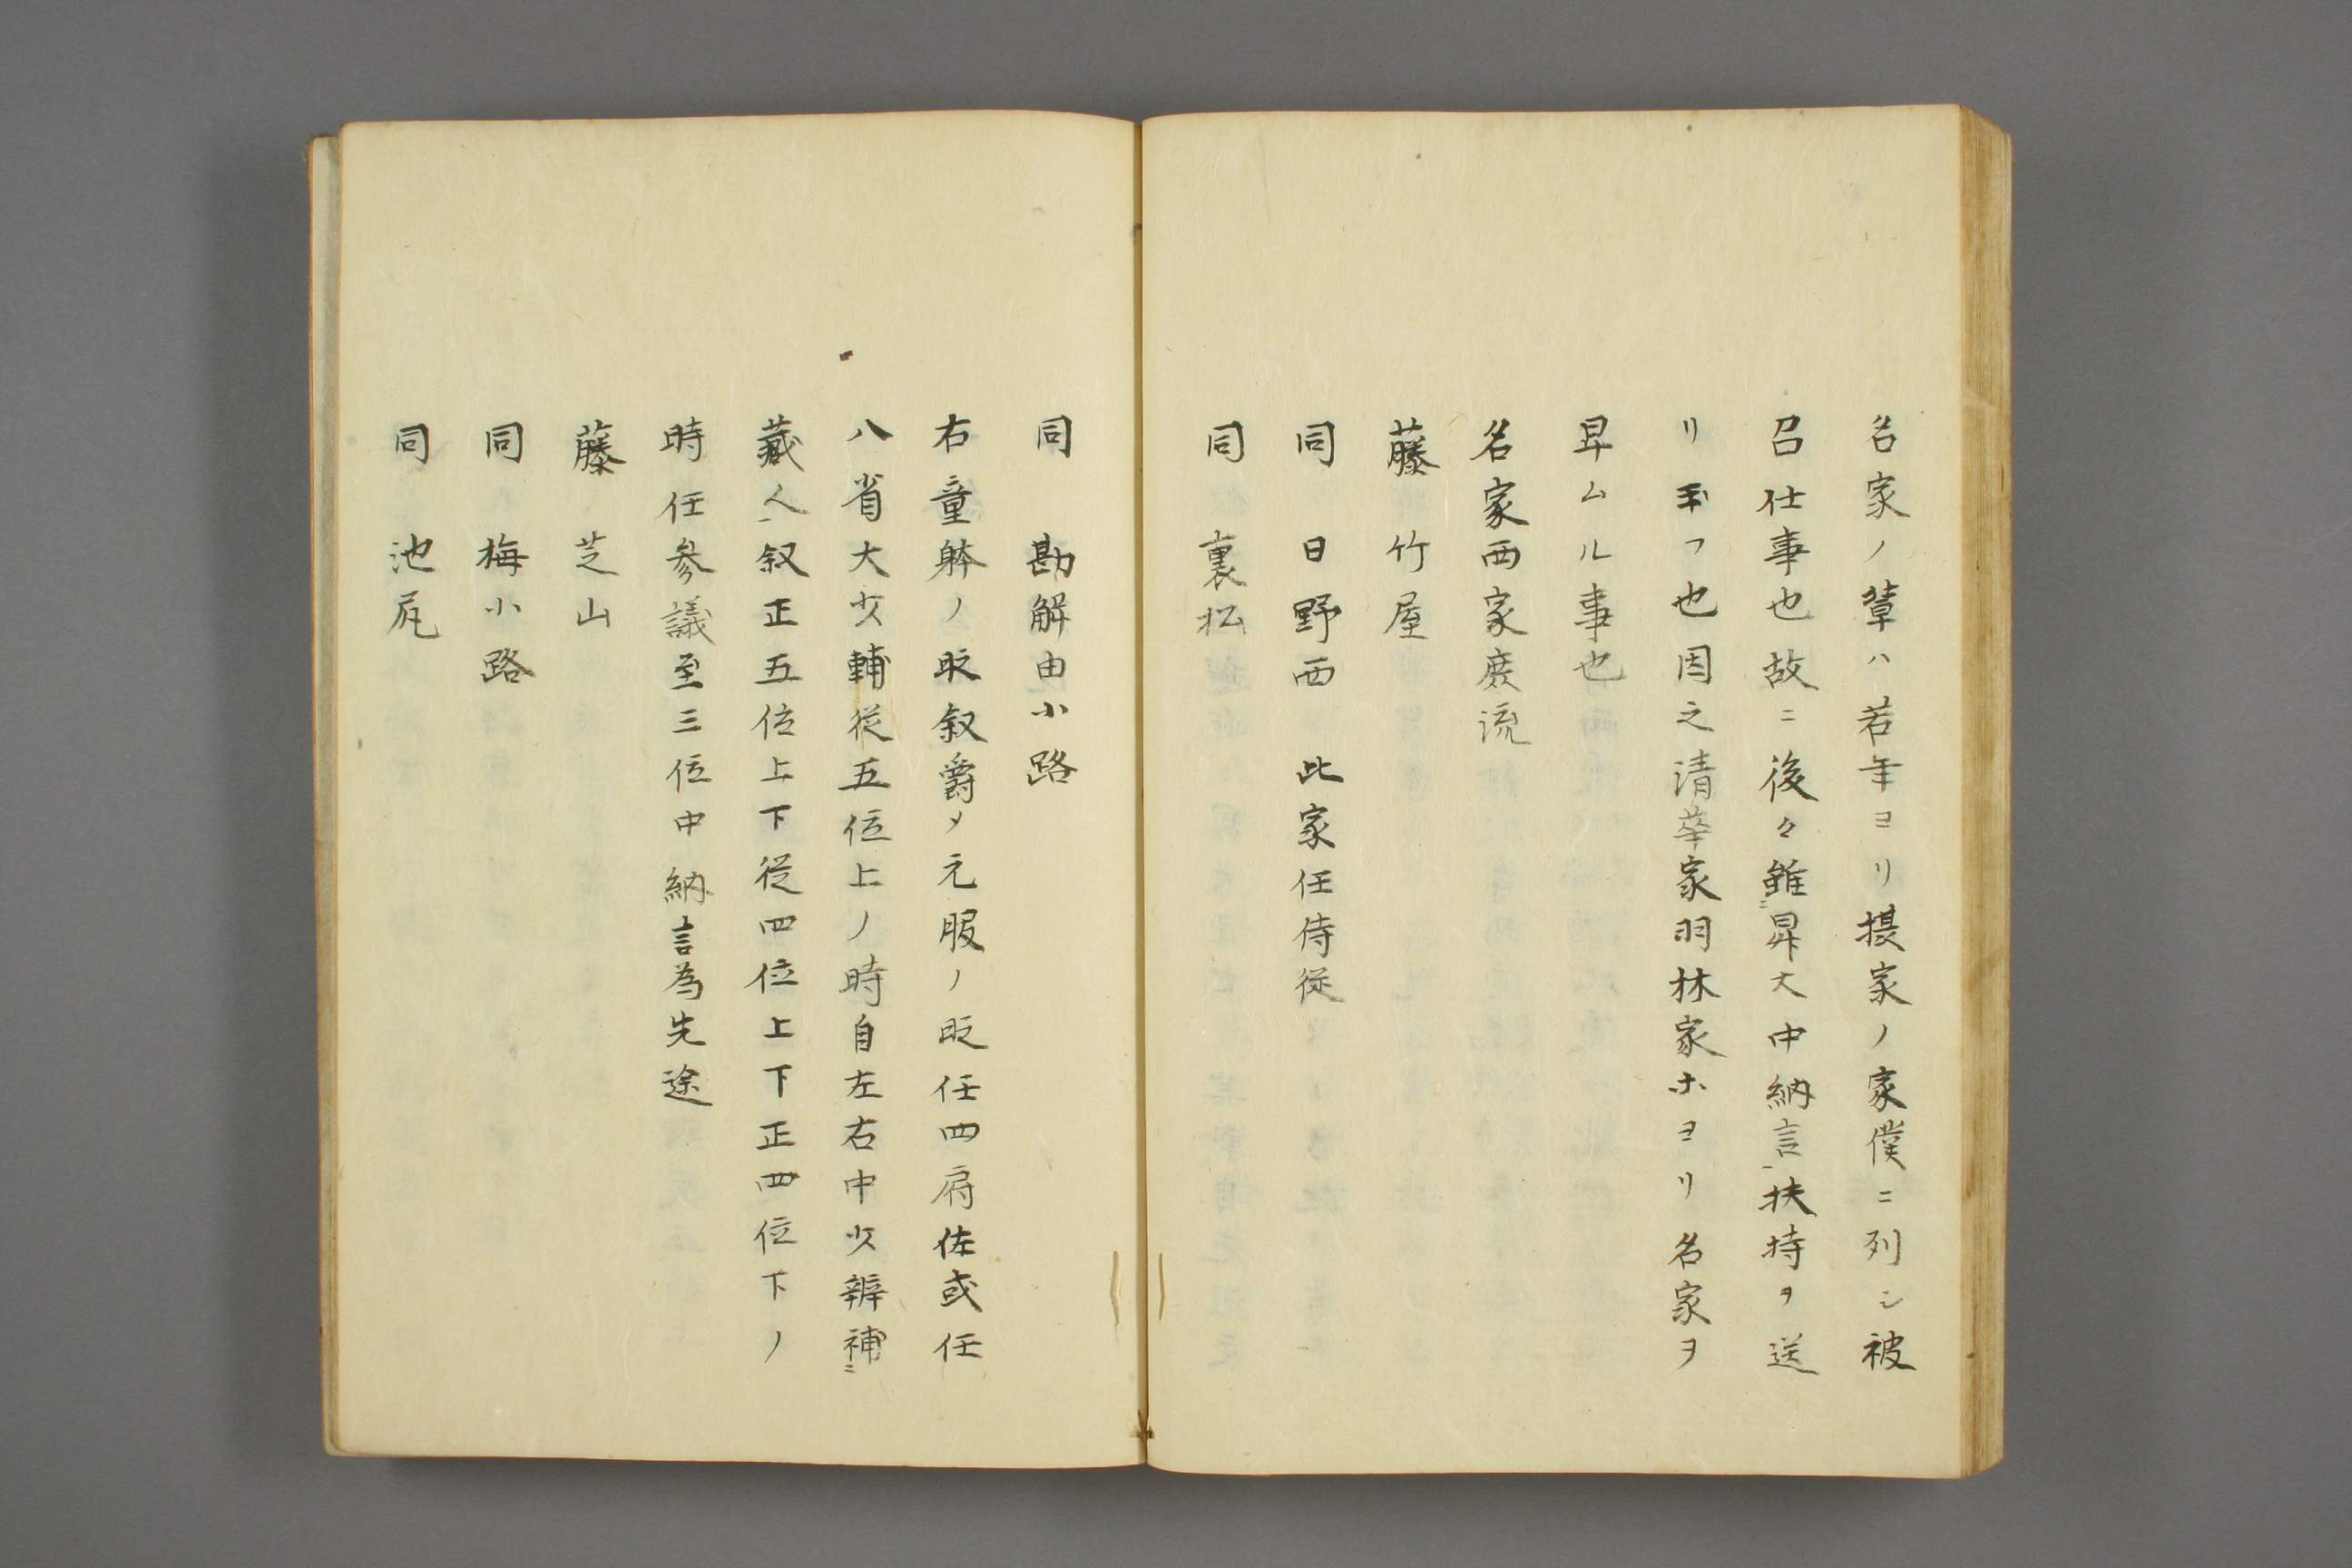 名家ノ輩ハ若年ヨリ摂家ノ家僕ニ列シ被
召仕事也故ニ後々雖ニ昇大中納言一扶持ヲ送
リ玉フ也因之清華家羽林家ホヨリ名家ヲ
早ムル事也
名家西家庶流
藤 竹屋
同 日野西 此家任侍従
同 裏松
同 勘解由小路
右童躰ノ時叙爵〆元服ノ時任四府佐或任
八省大少輔従五位上ノ時自左右中少辨補ニ
蔵人一叙正五位上下従四位上下正四位下ノ
時任参議至三位中納言為先途
藤 芝山
同 梅小路
同 池尻